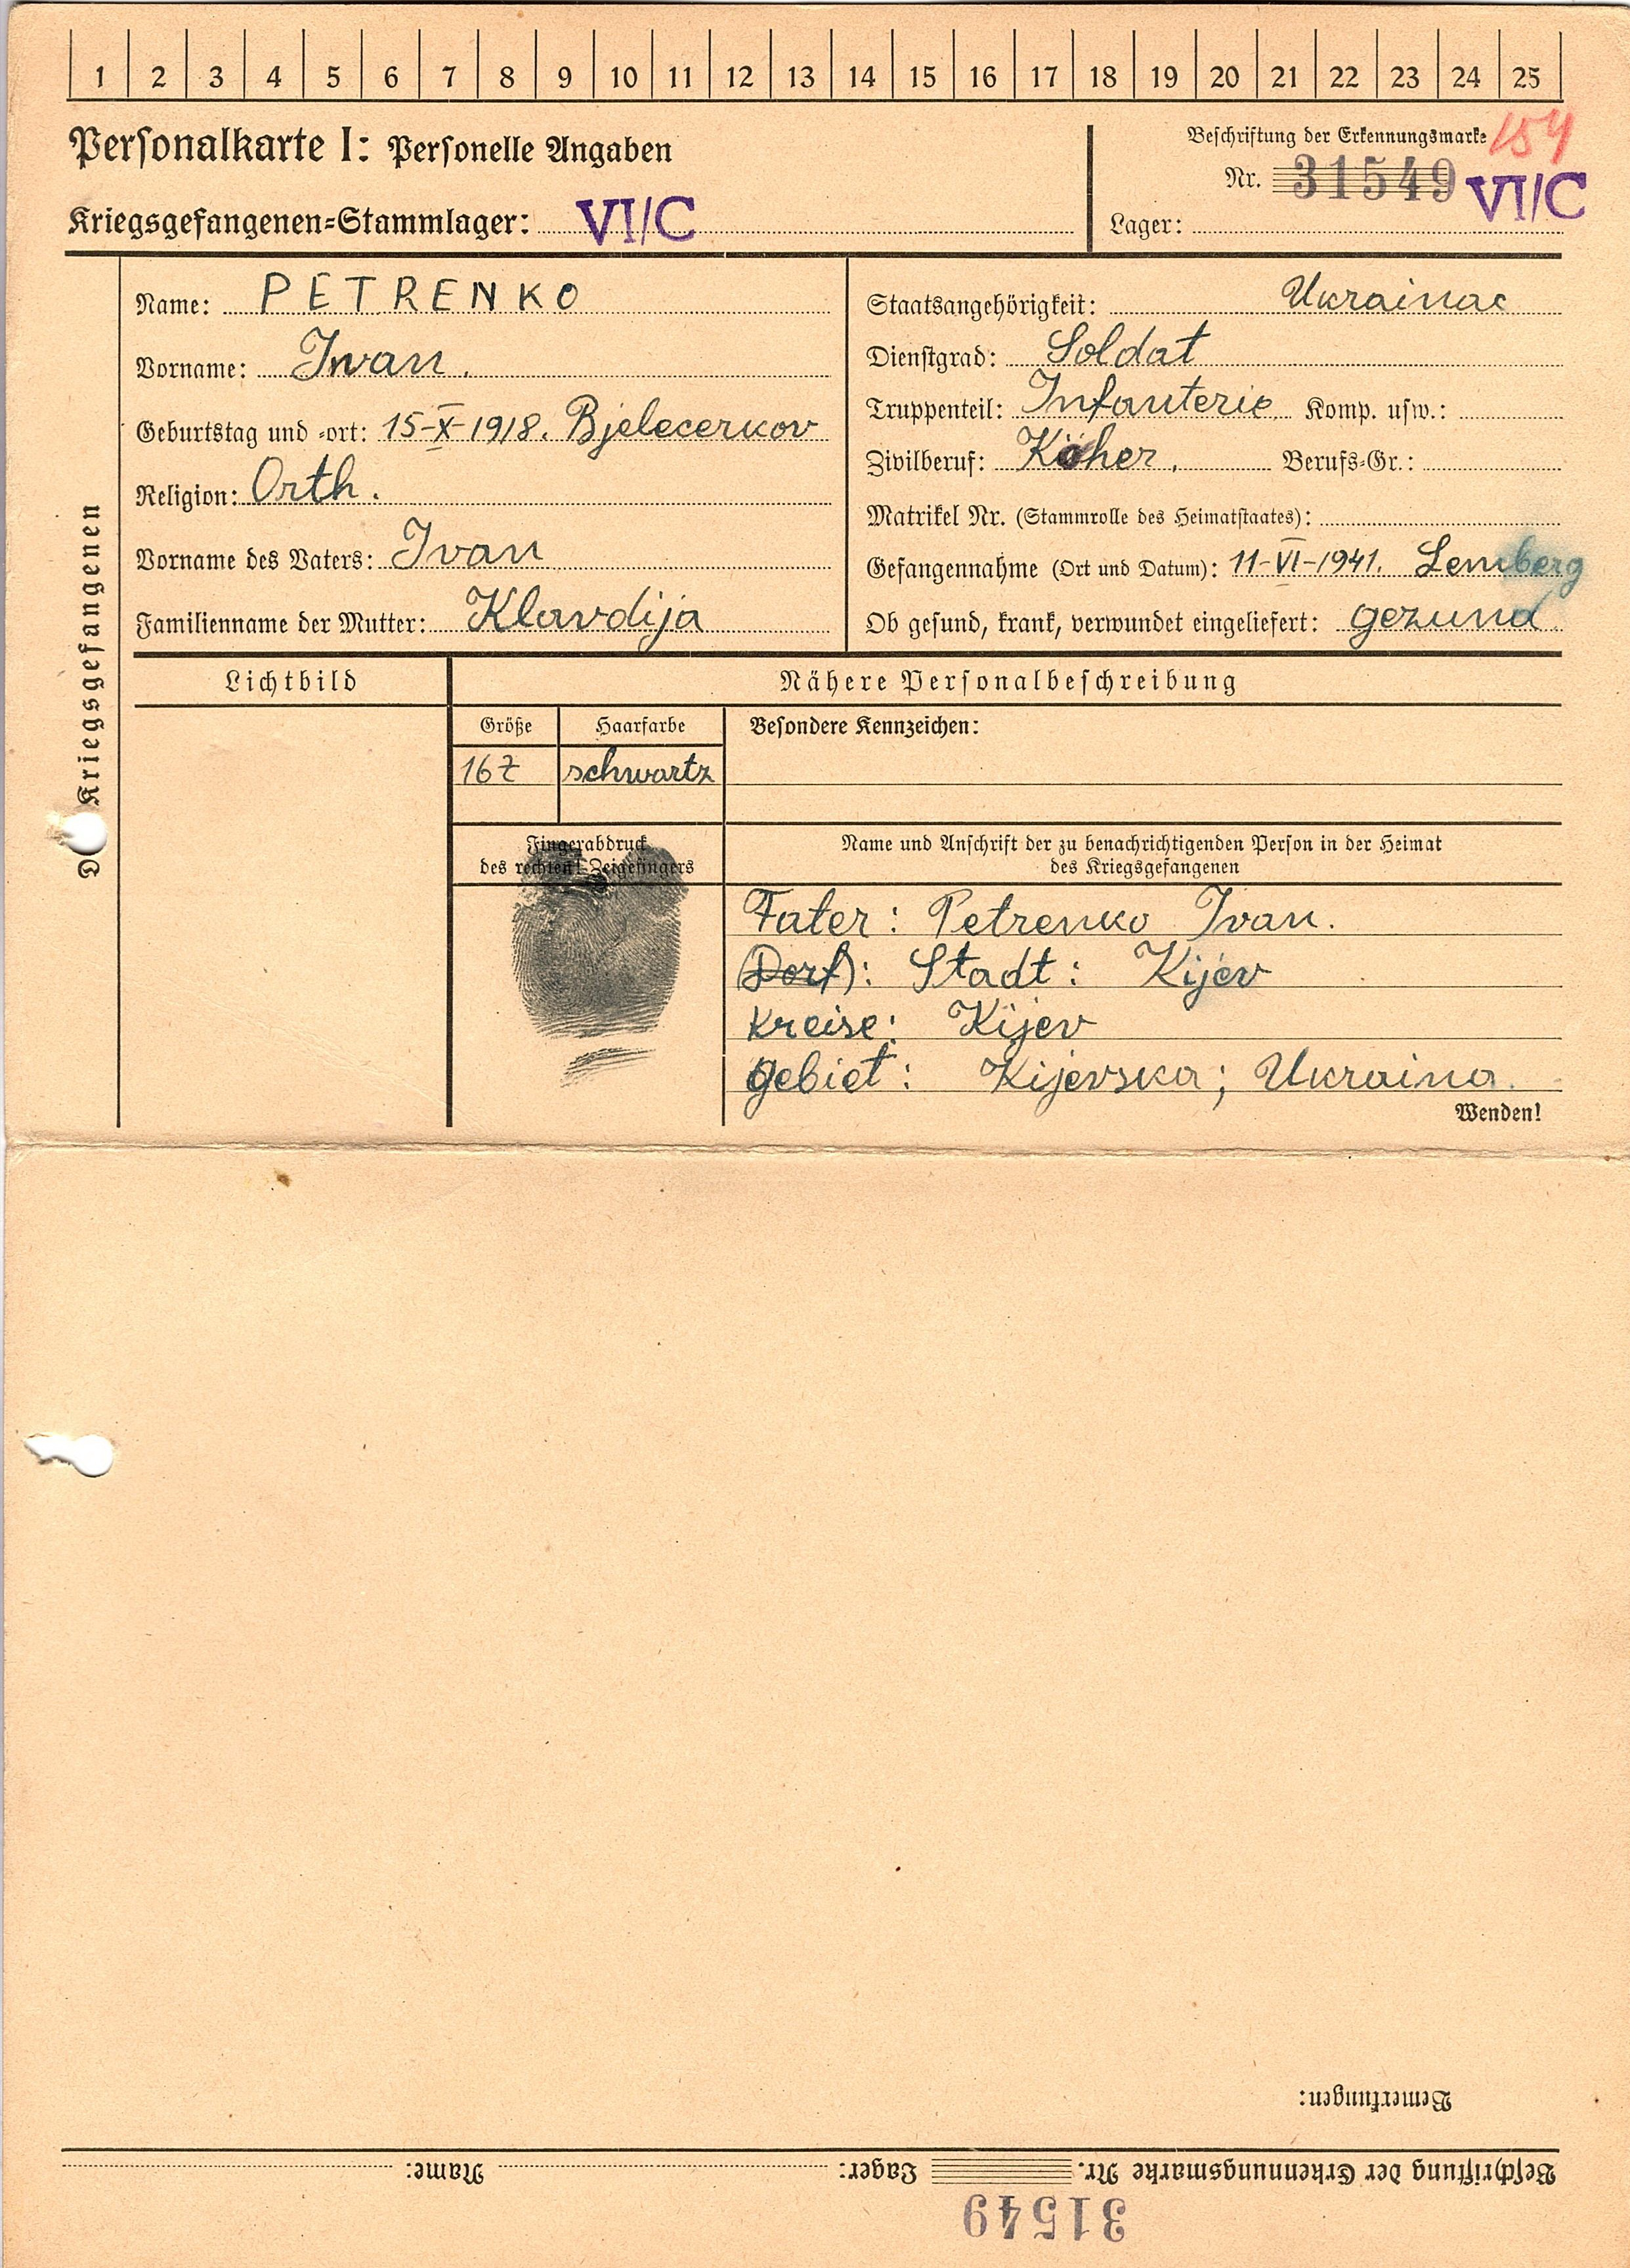 1 2 3 4 5 6 7 8 9 10 11 12 13 14 15 16 17 18 19 20 21 22 23 24 25
Personalkarte I: Personelle Angaben
Kriegsgefangenen-Stammlager: VI/C
Beschriftung der Erkennungsmarke 154
Nr. 31549 VI/C
Lager:
Des Kriegsgefangenen
Name: PETRENKO
Vorname: Iwan.
Geburtstag und -ort: 15-X-1918. Bjelecerkov
Religion: Orth.
Vorname des Vaters: Ivan
Familienname der Mutter: Klavdija
Staatsangehörigkeit: Ukrainac
Dienstgrad: Soldat
Truppenteil: Infanterie Komp. usw.:
Zivilberuf: Köher. Berufs-Gr.:
Matrikel Nr. (Stammrolle des Heimatstaates):
Gefangennahme (Ort und Datum): 11-VI-1941. Lemberg
Ob gesund, krank, verwundet eingeliefert: gezund
Lichtbild
Nähere Personalbeschreibung
Größe Haarfarbe Besondere Kennzeichen:
167 schwartz
Fingerabdruck
des rechten! Zeigefingers
Name und Anschrift der zu benachrichtigenden Person in der Heimat
des Kriegsgefangenen
Fater: Petrenko Ivan.
(Dorf): Stadt: Kijev
Kreise: Kijev
Gebiet: Kijevska; Ukraina.
Wenden!
Bemerkungen:
Beschriftung der Erkennungsmarke Nr. Lager: Name:
31549